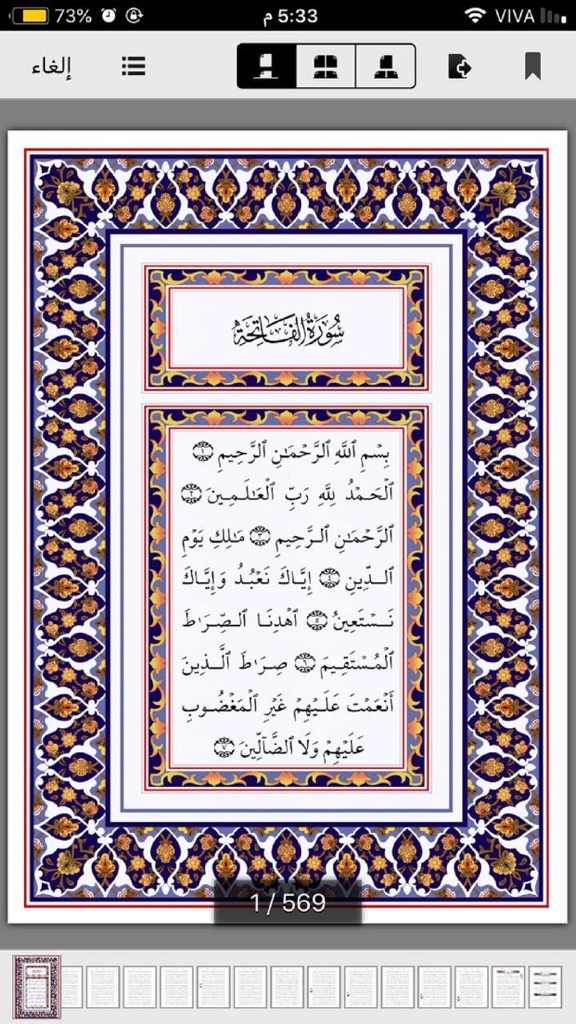 73%
5:33 م
VIVA
إلغاء
سُورَةُ الفَاتِحَةِ
بِسۡمِ ٱللَّهِ ٱلرَّحۡمَٰنِ ٱلرَّحِيمِ ١
ٱلۡحَمۡدُ لِلَّهِ رَبِّ ٱلۡعَٰلَمِينَ ٢
ٱلرَّحۡمَٰنِ ٱلرَّحِيمِ ٣ مَٰلِكِ يَوۡمِ
ٱلدِّينِ ٤ إِيَّاكَ نَعۡبُدُ وَإِيَّاكَ
نَسۡتَعِينُ ٥ ٱهۡدِنَا ٱلصِّرَٰطَ
ٱلۡمُسۡتَقِيمَ ٦ صِرَٰطَ ٱلَّذِينَ
أَنۡعَمۡتَ عَلَيۡهِمۡ غَيۡرِ ٱلۡمَغۡضُوبِ
عَلَيۡهِمۡ وَلَا ٱلضَّآلِّينَ ٧
1 / 569